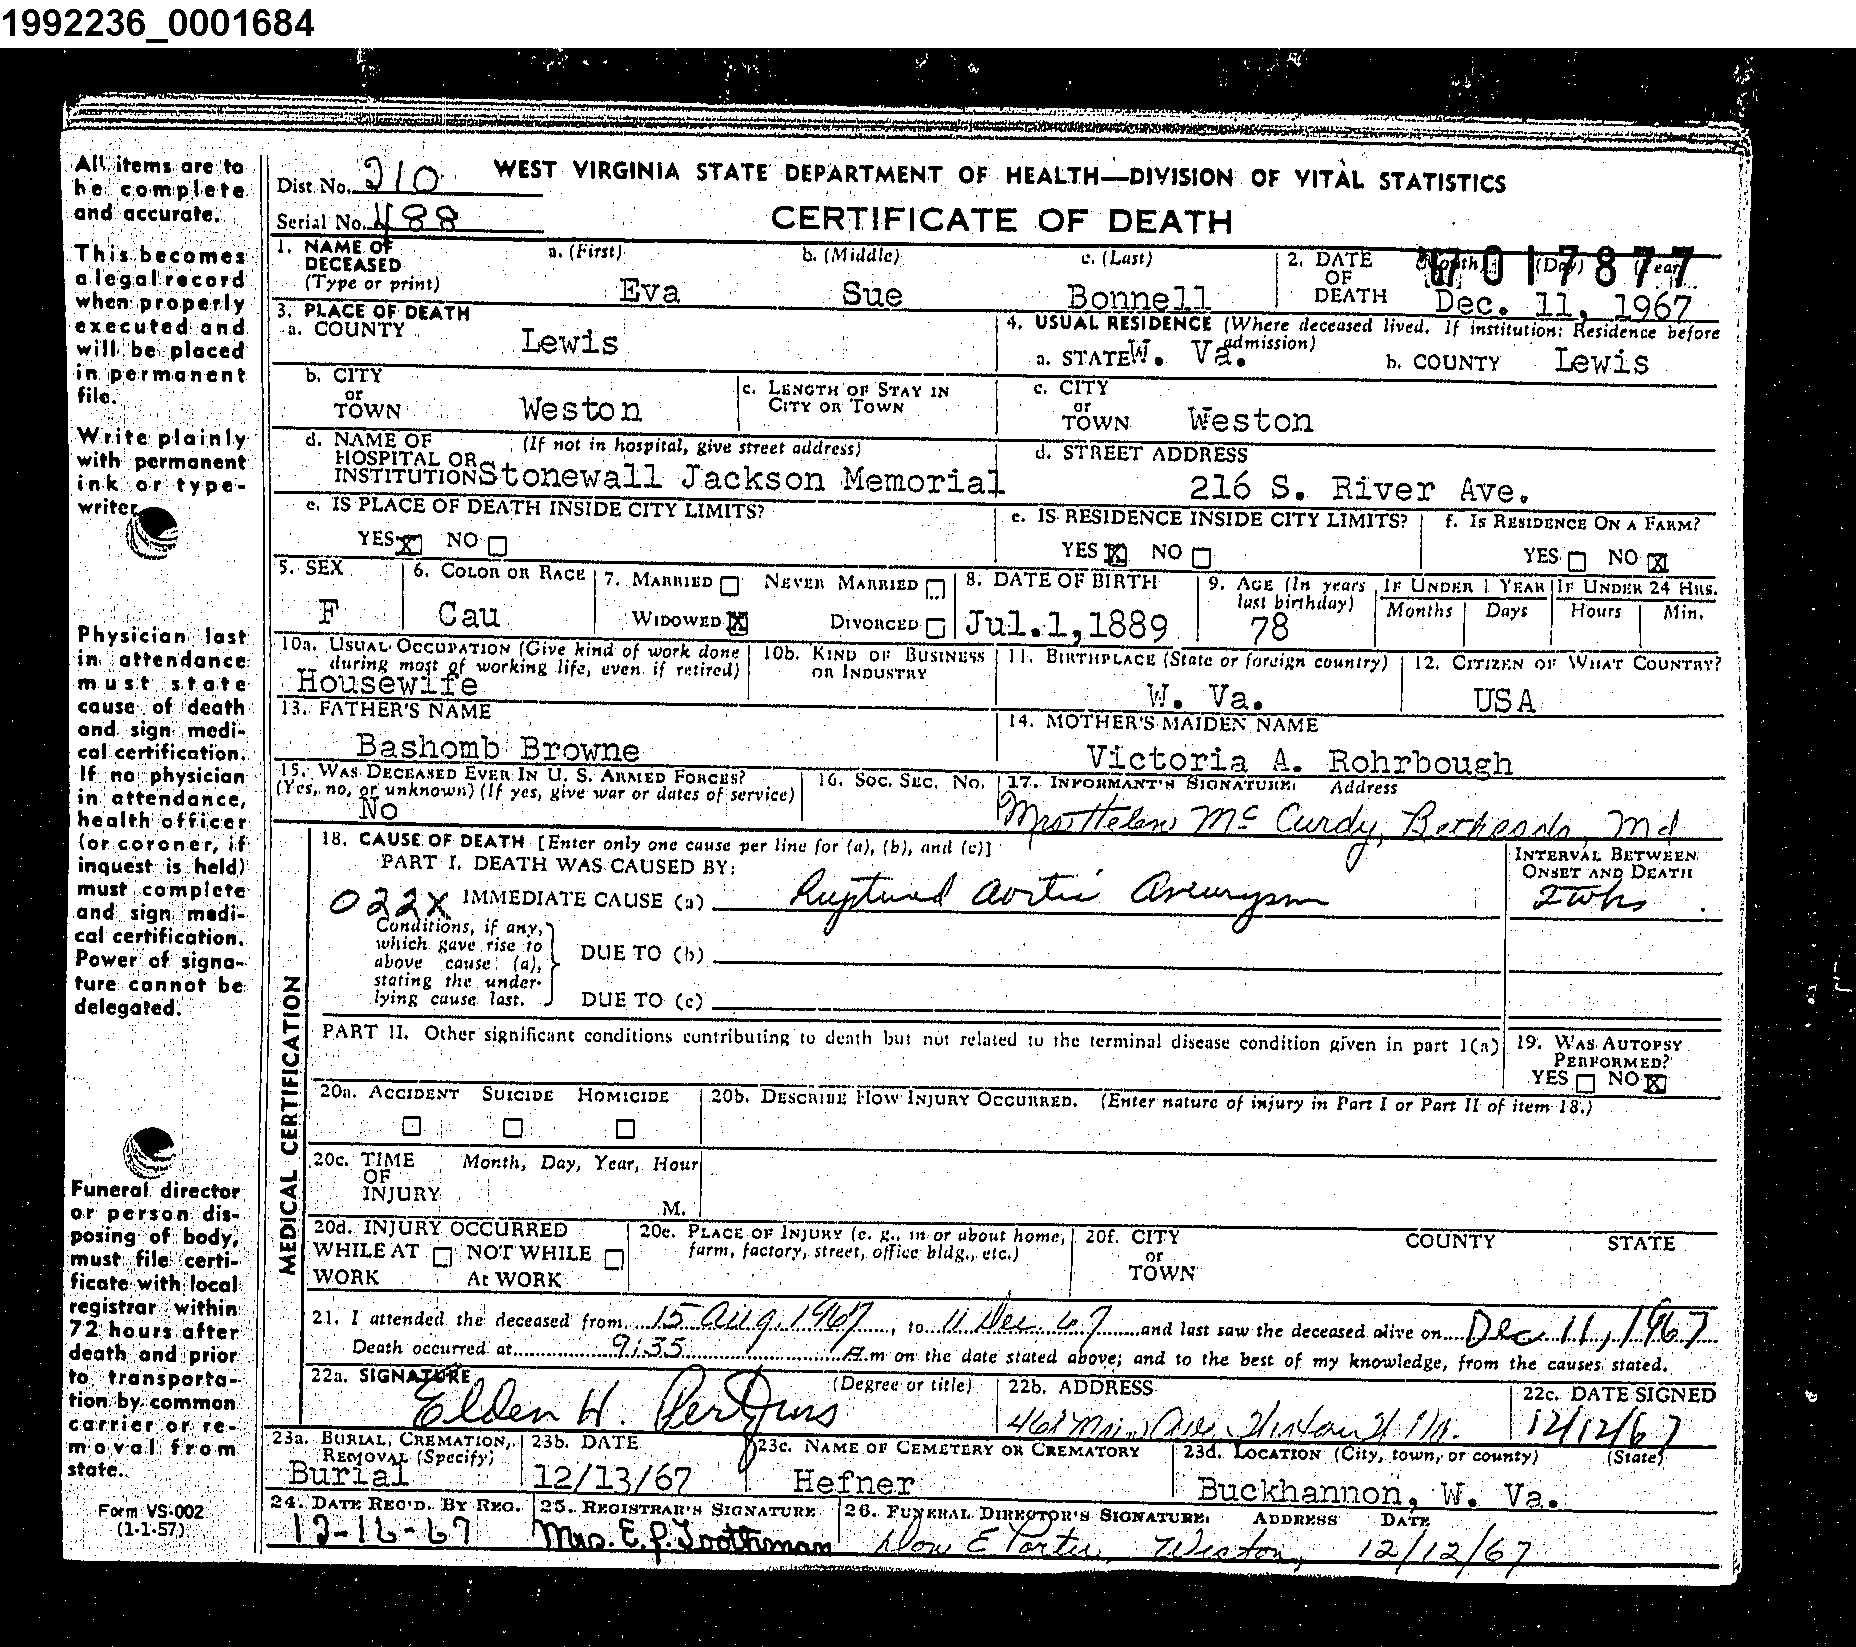 1992236_0001684
All items are to be complete and accurate.
This becomes a legal record when properly executed and will be placed in permanent file.
Write plainly with permanent ink or typewriter.
Physician last in attendance must state cause of death and sign medical certification. If no physician in attendance, health officer (or coroner, if inquest is held) must complete and sign medical certification. Power of signature cannot be delegated.
Funeral director or person disposing of body, must file certificate with local registrar within 72 hours after death and prior to transportation by common carrier or removal from state.
Form VS-002
(1-1-57)
Dist. No. 210
WEST VIRGINIA STATE DEPARTMENT OF HEALTH—DIVISION OF VITAL STATISTICS
Serial No. 488
CERTIFICATE OF DEATH
1. NAME OF DECEASED (Type or print) a. (First) b. (Middle) c. (Last)
Eva Sue Bonnell
2. DATE OF DEATH (Month) (Day) (Year)
7017877
Dec. 11, 1967
3. PLACE OF DEATH
a. COUNTY Lewis
4. USUAL RESIDENCE (Where deceased lived. If institution: Residence before admission)
a. STATE W. Va. b. COUNTY Lewis
b. CITY or TOWN Weston
c. LENGTH OF STAY IN CITY OR TOWN
c. CITY or TOWN Weston
d. NAME OF HOSPITAL OR INSTITUTION (If not in hospital, give street address)
Stonewall Jackson Memorial
d. STREET ADDRESS
216 S. River Ave.
e. IS PLACE OF DEATH INSIDE CITY LIMITS?
YES X NO
e. IS RESIDENCE INSIDE CITY LIMITS?
YES X NO
f. IS RESIDENCE ON A FARM?
YES NO X
5. SEX F
6. COLOR OR RACE Cau
7. MARRIED NEVER MARRIED
WIDOWED X DIVORCED
8. DATE OF BIRTH
Jul.1,1889
9. AGE (In years last birthday) 78
IF UNDER 1 YEAR Months Days
IF UNDER 24 HRS. Hours Min.
10a. USUAL OCCUPATION (Give kind of work done during most of working life, even if retired)
Housewife
10b. KIND OF BUSINESS OR INDUSTRY
11. BIRTHPLACE (State or foreign country)
W. Va.
12. CITIZEN OF WHAT COUNTRY?
USA
13. FATHER'S NAME
Bashomb Browne
14. MOTHER'S MAIDEN NAME
Victoria A. Rohrbough
15. WAS DECEASED EVER IN U. S. ARMED FORCES?
(Yes, no, or unknown) (If yes, give war or dates of service)
No
16. SOC. SEC. No.
17. INFORMANT'S SIGNATURE: Address
Mrs Helen Mc Curdy, Bethesda, Md
MEDICAL CERTIFICATION
18. CAUSE OF DEATH [Enter only one cause per line for (a), (b), and (c)]
PART I. DEATH WAS CAUSED BY:
INTERVAL BETWEEN ONSET AND DEATH
022X IMMEDIATE CAUSE (a) Ruptured aortic aneurysm
Conditions, if any, which gave rise to above cause (a), stating the underlying cause last.
DUE TO (b)
DUE TO (c)
PART II. Other significant conditions contributing to death but not related to the terminal disease condition given in part 1(a)
19. WAS AUTOPSY PERFORMED?
YES NO X
20a. ACCIDENT SUICIDE HOMICIDE
20b. DESCRIBE HOW INJURY OCCURRED. (Enter nature of injury in Part I or Part II of item 18.)
20c. TIME OF INJURY Month, Day, Year, Hour
M.
20d. INJURY OCCURRED
WHILE AT WORK NOT WHILE At WORK
20e. PLACE OF INJURY (e. g., in or about home, farm, factory, street, office bldg., etc.)
20f. CITY or TOWN COUNTY STATE
21. I attended the deceased from 15 Aug. 1967, to 11 Dec. 67 and last saw the deceased alive on Dec 11, 1967
Death occurred at 9:35 A.m on the date stated above; and to the best of my knowledge, from the causes stated.
22a. SIGNATURE (Degree or title)
Elden H. Perkins
22b. ADDRESS
22c. DATE SIGNED
12/12/67
23a. BURIAL, CREMATION, REMOVAL (Specify)
Burial
23b. DATE
12/13/67
23c. NAME OF CEMETERY OR CREMATORY
Hefner
23d. LOCATION (City, town, or county) (State)
Buckhannon, W. Va.
24. DATE REC'D. BY REG.
12-16-67
25. REGISTRAR'S SIGNATURE
Mrs. E. P. Toothman
26. FUNERAL DIRECTOR'S SIGNATURE: ADDRESS DATE
Weston, 12/12/67